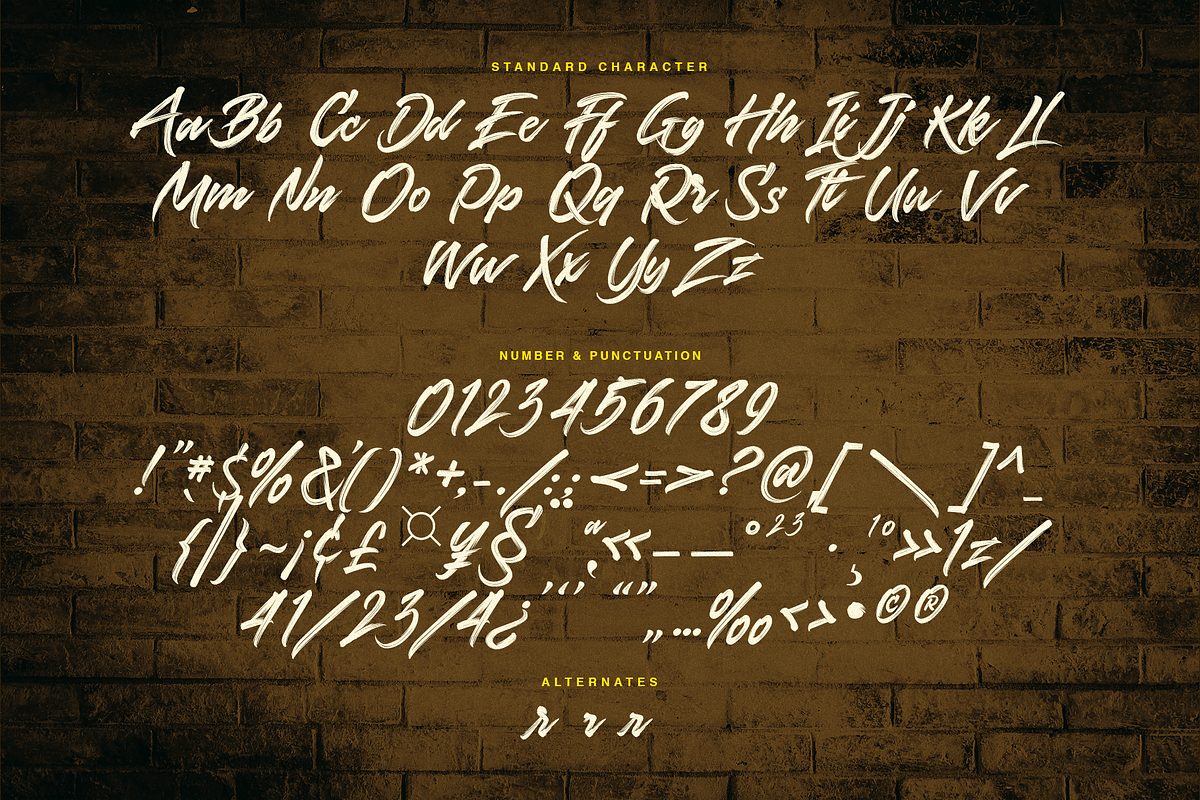 STANDARD CHARACTER
Aa Bb Cc Dd Ee Ff Gg Hh Ii Jj Kk Ll
Mm Nn Oo Pp Qq Rr Ss Tt Uu Vv
Ww Xx Yy Zz
NUMBER & PUNCTUATION
0123456789
!"#$%&'()*+,-./:;<=>?@[\]^_
{|}~¡¢£¤¥§¨ª«—–°23·¸10»1⁄
41/23/4¿‘’‚“”„…‰‹›•©®
ALTERNATES
r r r